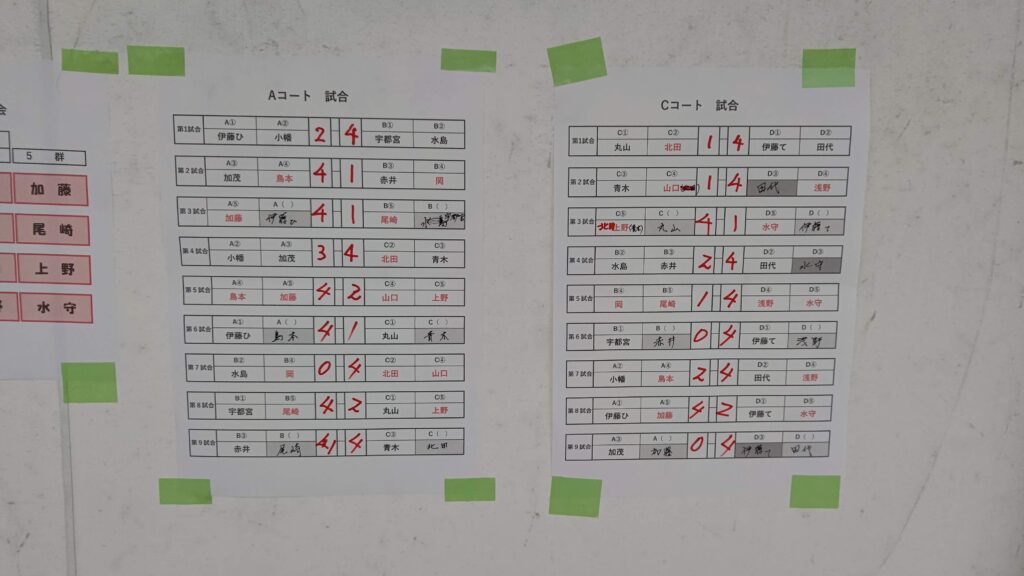 会
5 群
加藤
尾崎
上野
水守
Aコート 試合
A① A② B① B②
第1試合 伊藤ひ 小幡 2 - 4 宇都宮 水島
A③ A④ B③ B④
第2試合 加茂 島本 4 - 1 赤井 岡
A⑤ A( ) B⑤ B( )
第3試合 加藤 伊藤ひ 4 - 1 尾崎
A② A③ C② C③
第4試合 小幡 加茂 3 - 4 北田 青木
A④ A⑤ C④ C⑤
第5試合 島本 加藤 4 - 2 山口 上野
A① A( ) C① C( )
第6試合 伊藤ひ 島本 4 - 1 丸山 青木
B② B④ C② C④
第7試合 水島 岡 0 - 4 北田 山口
B① B⑤ C① C⑤
第8試合 宇都宮 尾崎 4 - 2 丸山 上野
B③ B( ) C③ C( )
第9試合 赤井 尾崎 - 4 青木 北田
Cコート 試合
C① C② D① D②
第1試合 丸山 北田 1 - 4 伊藤て 田代
C③ C④ D③ D④
第2試合 青木 山口 1 - 4 田代 浅野
C⑤ C( ) D⑤ D( )
第3試合 上野 丸山 4 - 1 水守 伊藤て
B② B③ D② D③
第4試合 水島 赤井 2 - 4 田代 水守
B④ B⑤ D④ D⑤
第5試合 岡 尾崎 1 - 4 浅野 水守
B① B( ) D① D( )
第6試合 宇都宮 赤井 0 - 4 伊藤て 浅野
A② A④ D② D④
第7試合 小幡 島本 2 - 4 田代 浅野
A① A⑤ D① D⑤
第8試合 伊藤ひ 加藤 4 - 2 伊藤て 水守
A③ A( ) D③ D( )
第9試合 加茂 加藤 0 - 4 伊藤て 田代